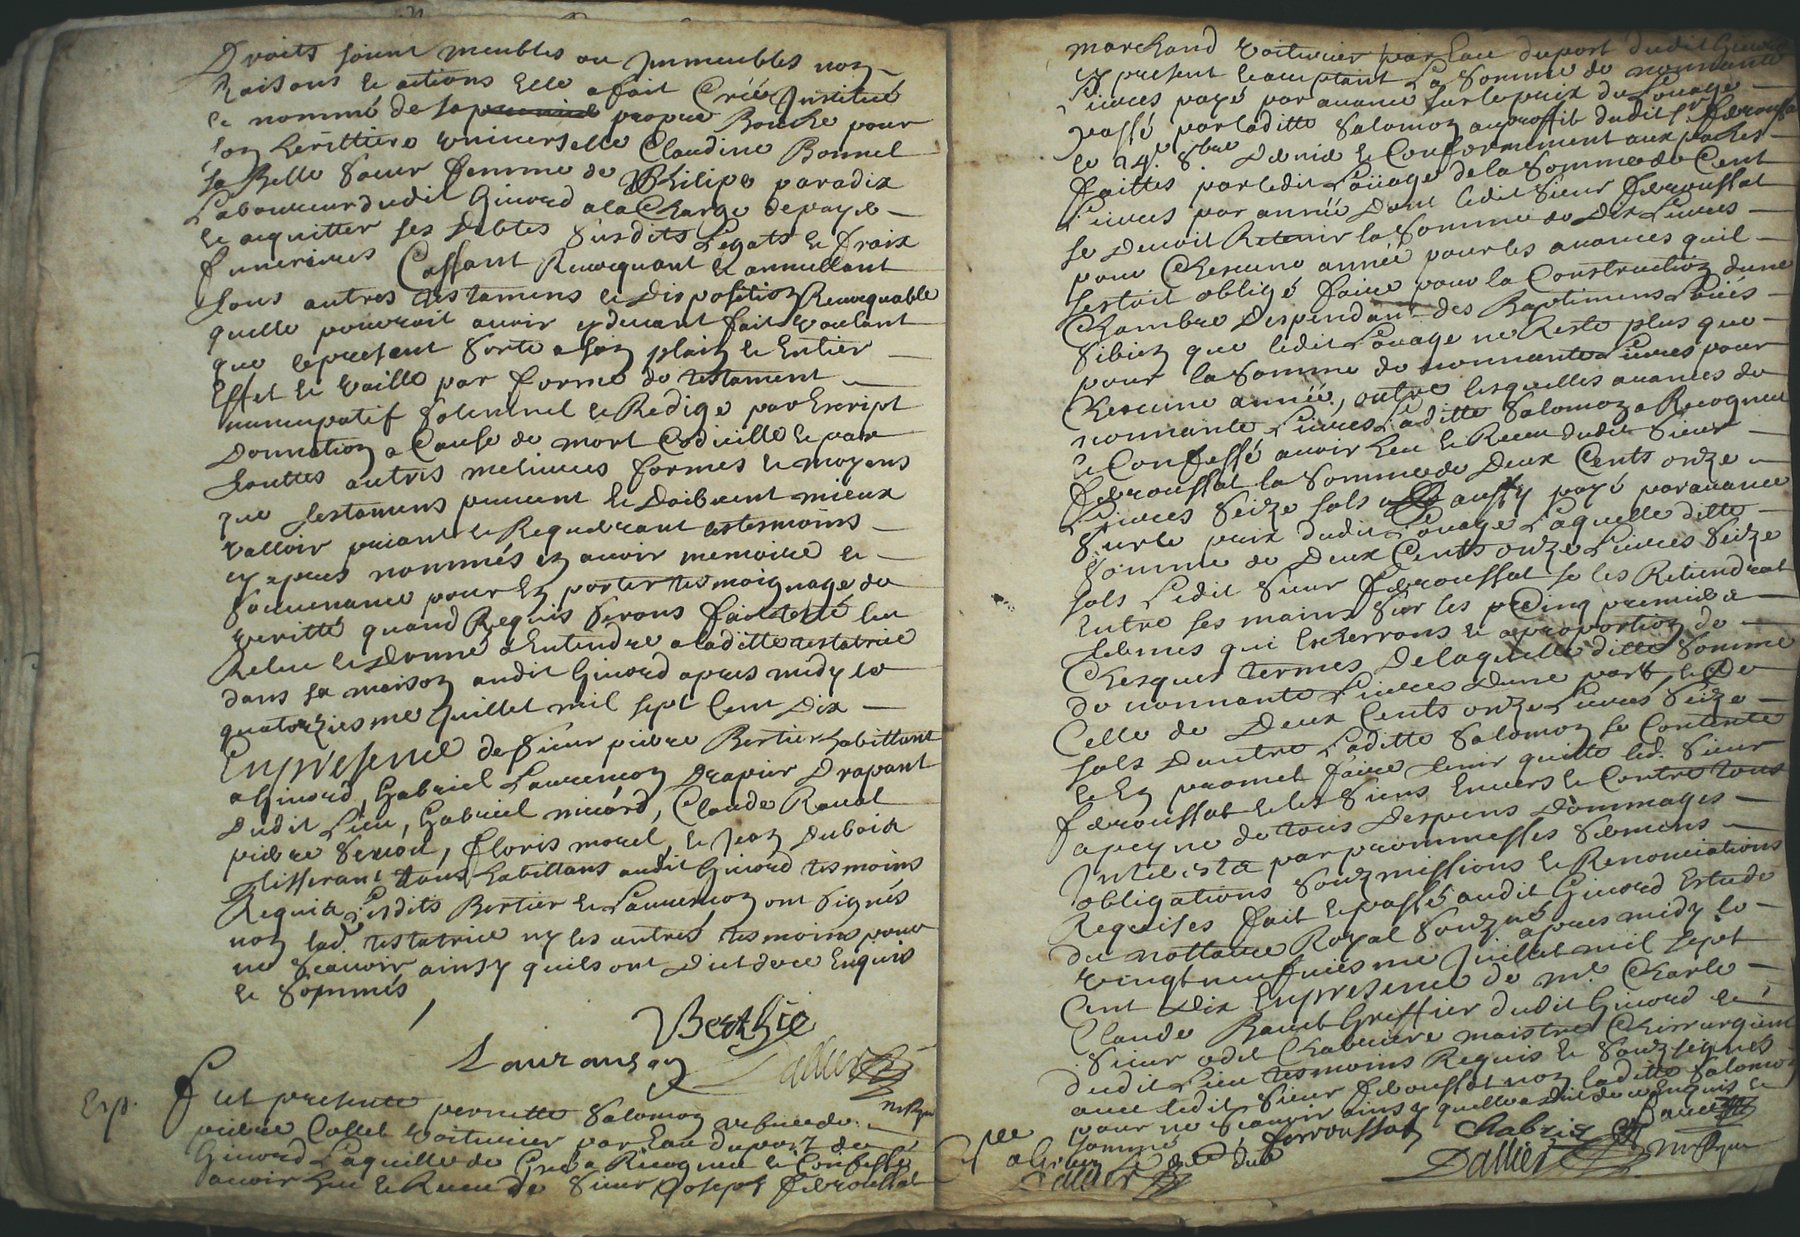 Droits soient meubles ou Jmmeubles noz
Raisons et actions Elle a fait Créé Jnstitué
et nommé de sa propre Bouche pour
soz herittiere universelle Claudine Bonnel
sa Belle Soeur femme de Philipe paradix
Laboureur dudit Givord a la Charge de payer
et acquitter ses Debtes susdits Legats et fraix
funeraires Cassant Revocquant et annullant
tous autres testamens et Disposition Revocquable
quelle pourroit avoir cy devant fait voulant
que le present sorte a soz plaiz et Entier
Effet et vaille par forme de testament
nuncupatif solennel et Redigé par Escript
Donnation a Cause de mort Codicille et par
touttes autres melieures formes et moyens
que testamens peuvent et Doibvent mieux
valloir priant et Requerant les tesmoins
cy apres nommés ez avoir memoire et
souvenance pour Ez porter tesmoignage de
veritté quand Requis serons fait leu
Releu et Donné a Entendre a laditte testatrice
dans sa maisoz audit Givord apres midy le
quatorziesme Juillet mil sept Cent Dix
En presence de sieur pierre Bertier habittant
a Givord, Gabriel Laurensoz Drapier Drapant
Dudit Lieu, Gabriel nicard, Claude Raval
pierre , floris morel, et Jeaz Duboix
tous habittans audit Givord tesmoins
Requis Lesdits Bertier et Laurensoz ont signés
noz lad. testatrice ny les autres tesmoins pour
ne Scavoir ainsy quils ont Dict de ce Enquis
et sommés
Berthie
Lauranson
Dallier
n. Ryal
Exp. fut presente pernette Salomoz vefve de
pierre Collet voiturier par Eau du port de
Givord Laquelle de Gré a Recogneu et Confessé
avoir heu et Receu de Sieur Joseph ferroussat
marchand voiturier par Eau du port dudit Givord
cy present et acceptant La Somme de nonnante
Livres payé par avance sur le prix du Louage
passé par laditte Salomoz au proffit dudit Sr ferroussat
le 24e 8bre Dernier et Conformement aux paches
faittes par ledit Loüage de la Somme de Cent
Livres par année Dont ledit Sieur ferroussat
se Devoit Retenir la Somme de Dix Livres
pour Chescune année pour les avances quil
sestoit obligé faire pour la Constructioz dune
Chambre Despendant des Bastimens Loüés
sibiez que ledit Loüage ne Reste plus que
pour la Somme de nonnante Livres pour
Chescune année, outre lesquelles avances de
nonnante Livres Laditte Salomoz a Recogneu
et Confessé avoir heu et Receu dudit Sieur
ferroussat la Somme de Deux Cents onze
Livres Seize sols aussy payé par avance
sur le prix dudit Louage Laquelle ditte
Somme de Deux Cents onze Livres Seize
sols Ledit Sieur ferroussat se les Retiendrat
Entre ses mains sur les Cinq premiers
termes qui Escherrons et a proportioz de
Chesques termes De laquelle ditte Somme
de nonnante Livres Dune part, et De
Celle de Deux Cents onze Livres Seize
sols Dautre Laditte Salomoz se Contente
et Ez promet faire tenir quitte led. Sieur
ferroussat et les siens Envers et Contre tous
a peyne de tous Despens Dommages
Jnterests par prommesses serments
obligations souzmissions et Renonciations
Requises fait et passé audit Givord Estude
du nottaire Royal Souzné apres midy le
vingt neufviesme Juillet mil sept
Cent Dix En presence de Me Charle
Claude Greffier dudit Givord et
Sieur odet Chabriere maistre Chirurgien
dudit Lieu tesmoins Requis et Souzsignes
avec ledit Sieur ferroussat noz laditte Salomoz
pour ne Scavoir ainsy quelle a dit de ce Enquise et
sommé
ferroussat Chabrie
Dallier n. Ryal
Dallier